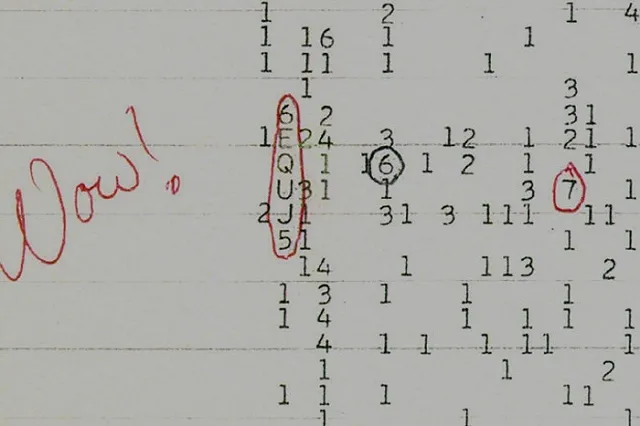 1 2 1 4
1 16 1 1
1 11 1 1 1
1 3
6 2 31
1 E 24 3 12 1 21 1
Q 1 16 1 2 1 1
U 31 1 3 7 1
2 J 1 31 3 111 11
51 1 1
14 1 113 2
1 3 1 1 1
1 4 1 1 1 1
4 1 1 1 11 1
1 1 2
1 1 1 11
1 1 1
Wow!